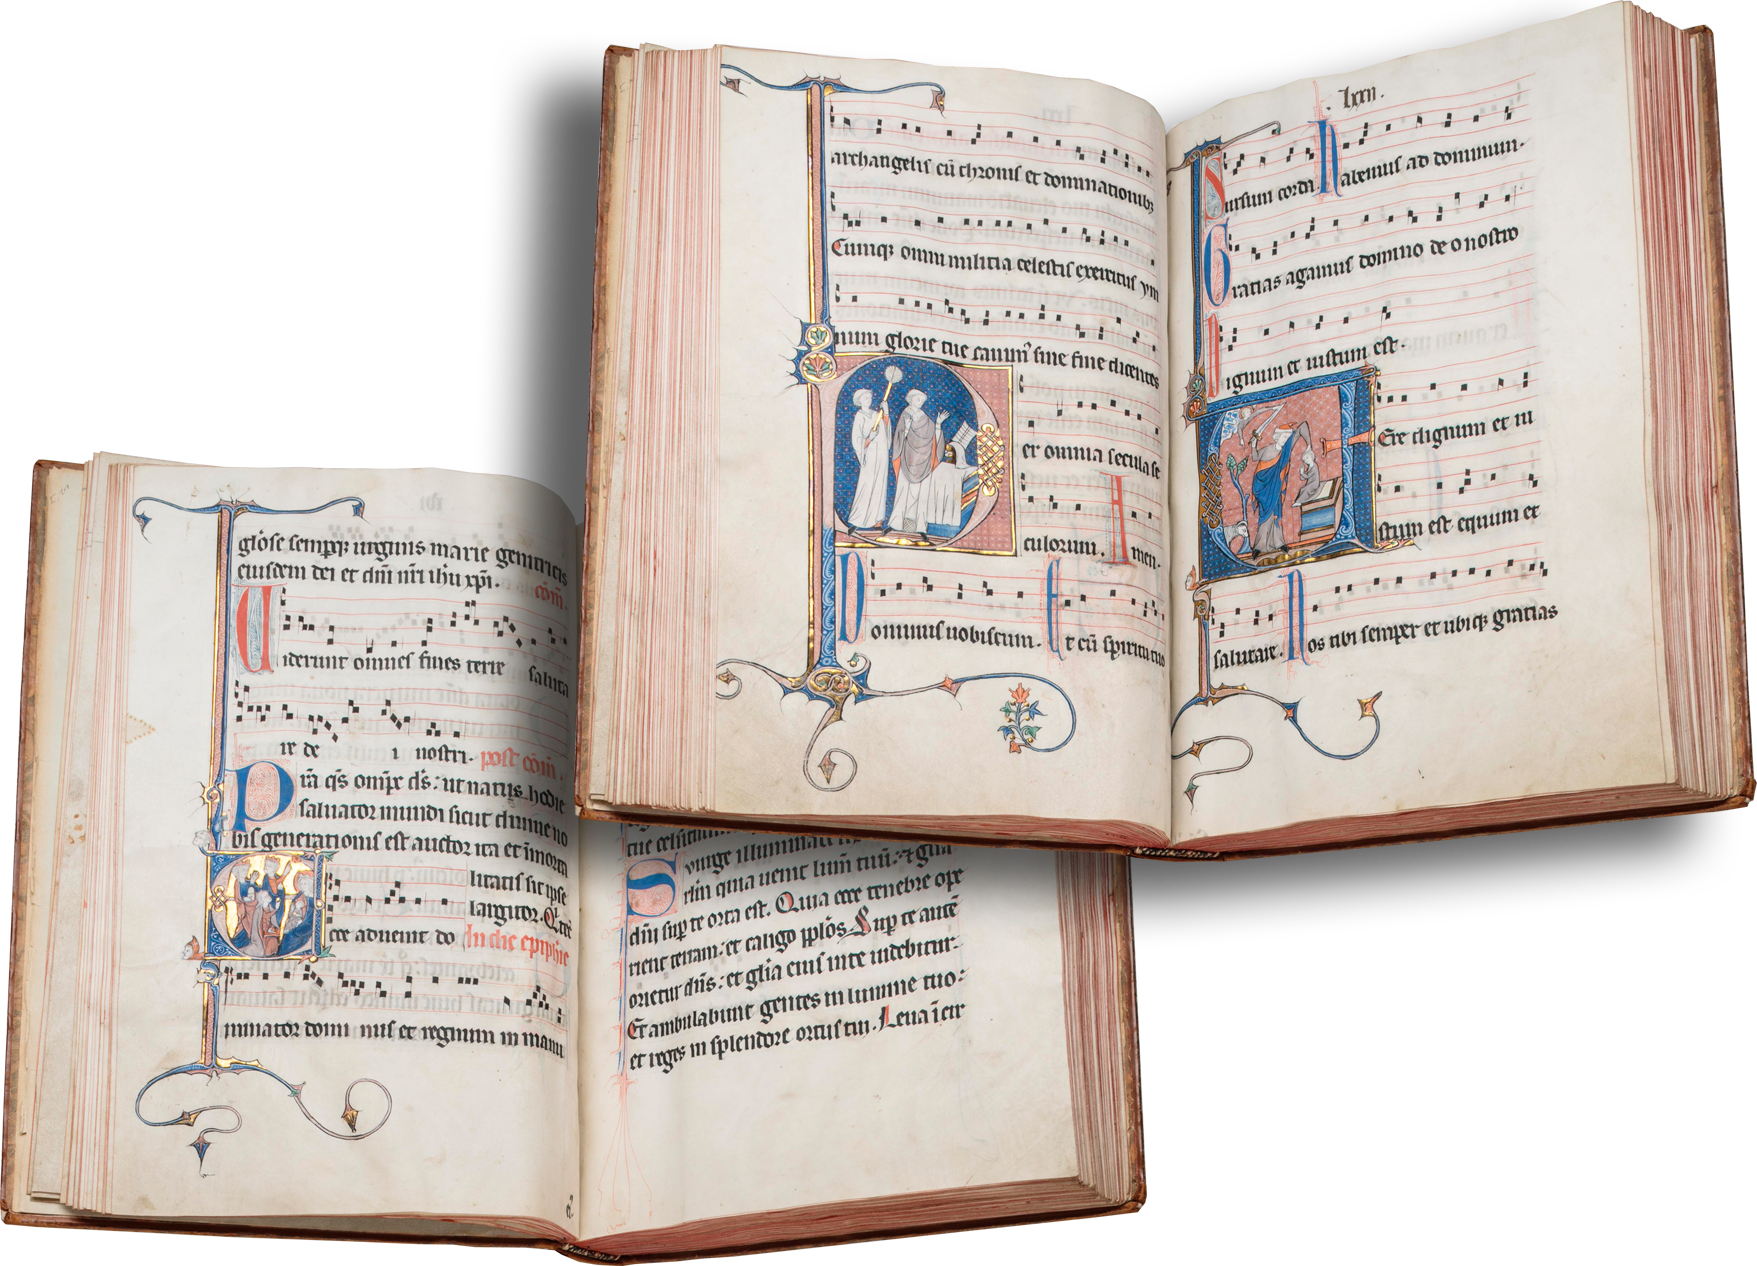 archangelis cū thronis et dominationibꝫ
Cumqꝫ omni militia celestis exercitus ym
num glorie tue canimꝰ sine fine dicentes
er omnia secula se
culorum. Amen.
Dominus uobiscum. Et cū spiritu tuo
.lxxii.
Sursum corda. Habemus ad dominum.
Gratias agamus domino deo nostro
Dignum et iustum est.
Uere dignum et iu
stum est equum et
salutare. Nos tibi semper et ubiqꝫ gratias
glōse semperqꝫ uirginis marie genitricis
eiusdem dei et dn̄i nr̄i ih̄u xp̄i. com̄.
Uiderunt omnes fines terre saluta
re de i nostri. post com̄.
Pr̄a qs̄ omp̄x ds̄: ut natus hodie
saluator mundi sicut diuine no
bis generationis est auctor ita et īmorta
litatis sit ipse
largitor.
Ecce aduenit do In die epiphīe
minator domi nus et regnum in manu
Surge illuminare
rl̄m quia uenit lum̄ tuū: ⁊ gl̄ia
dn̄i sup̄ te orta est. Quia ecce tenebre ope
rient terram: et caligo pp̄los. Sup̄ te autē
orietur dn̄s: et gl̄ia eius in te uidebitur.
Et ambulabunt gentes in lumine tuo:
et reges in splendore ortus tui. Leua ī cir